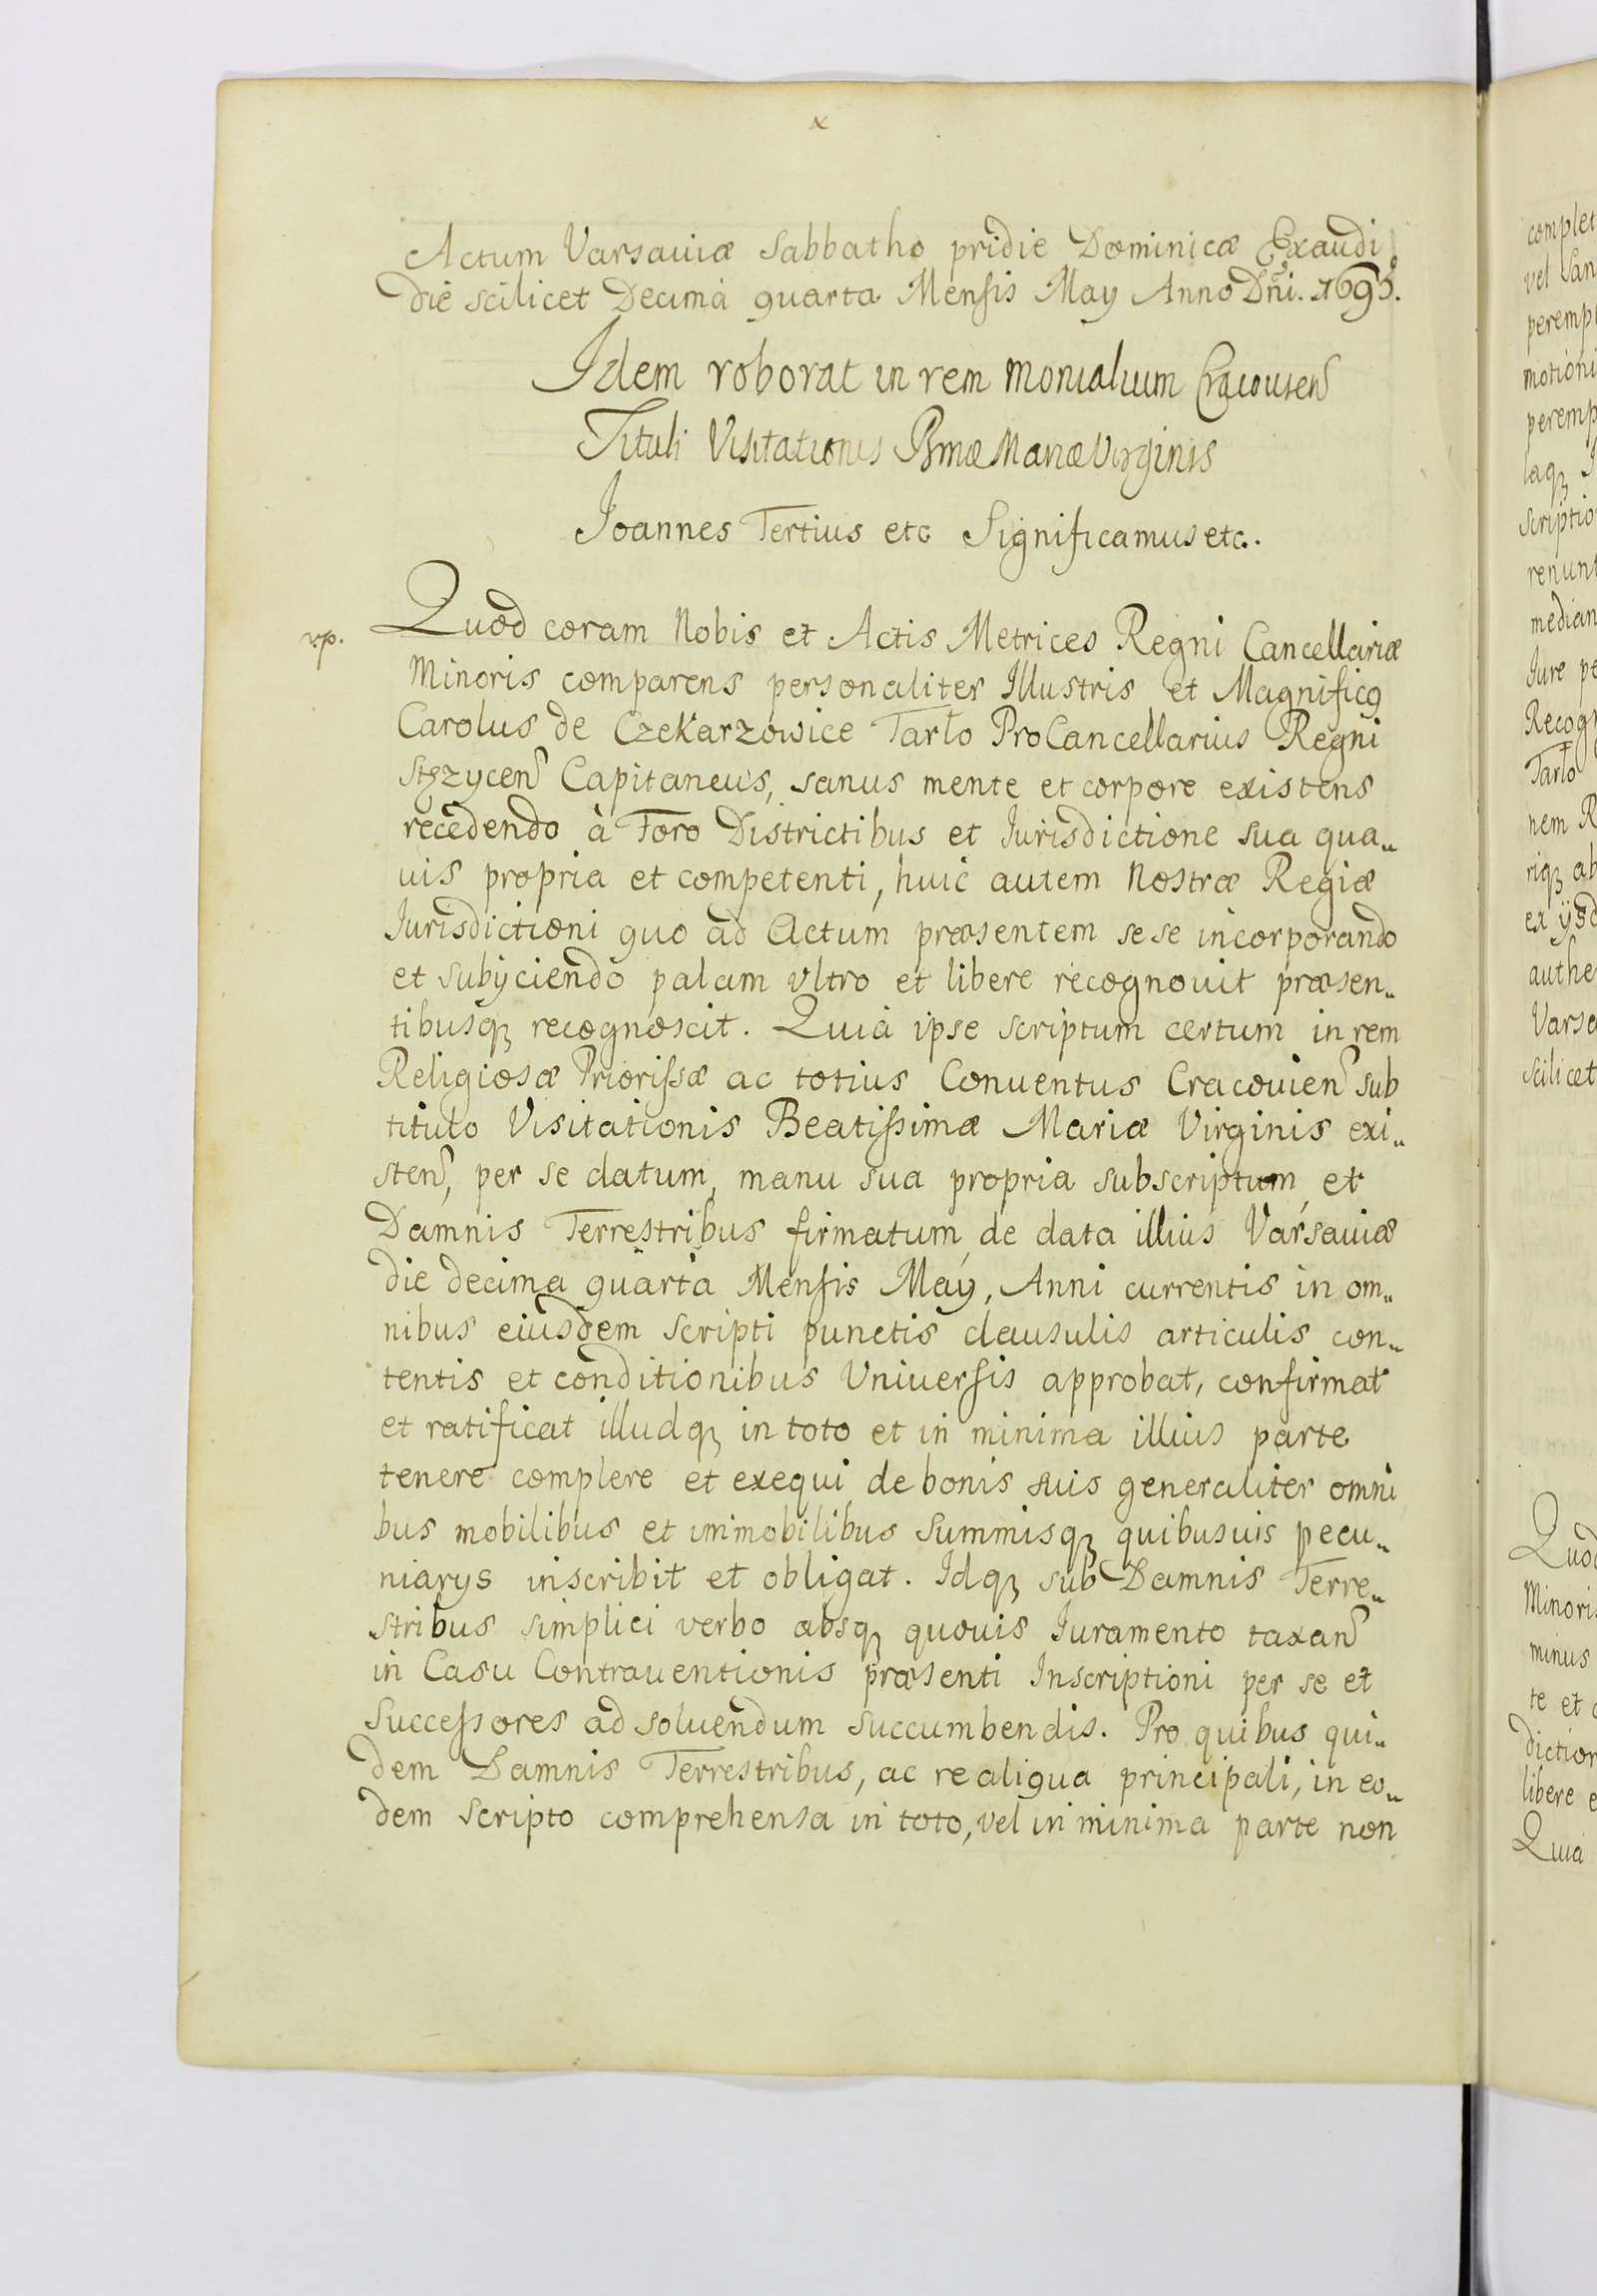 x
Actum Varsaviæ Sabbatho pridie Dominicæ Exaudi
die scilicet Decima quarta Mensis May Anno Dn̄i. 1695.
Idem roborat in rem Monialium Cracovien̄
Tituli Visitationis Bm̄æ Mariæ Virginis
Joannes Tertius etc Significamus etc.
vp.
Quod coram Nobis et Actis Metrices Regni Cancellariæ
Minoris comparens personaliter Illustris et Magnificꝯ
Carolus de Czekarzowice Tarło ProCancellarius Regni
Stęzycen̄ Capitaneus, sanus mente et corpore existens
recedendo à Foro Districtibus et Iurisdictione sua qua„
uis propria et competenti, huic autem Nostræ Regiæ
Iurisdictioni quo ad Actum præsentem sese incorporando
et subÿciendo palam vltro et libere recognouit præsen„
tibusqꝫ recognoscit. Quia ipse scriptum certum in rem
Religiosæ Priorissæ ac totius Conuentus Cracouien̄ sub
titulo Visitationis Beatissimæ Mariæ Virginis exi„
sten̄, per se datum, manu sua propria subscriptum, et
Damnis Terrestribus firmatum, de data illius Varsauiæ
die decima quarta Mensis May, Anni currentis in om„
nibus eiusdem scripti punctis clausulis articulis con„
tentis et conditionibus Vniuersis approbat, confirmat
et ratificat illudqꝫ in toto et in minima illius parte
tenere complere et exequi de bonis suis generaliter omni
bus mobilibus et immobilibus summisqꝫ quibusuis pecu„
niarys inscribit et obligat. Idqꝫ sub Damnis Terre„
stribus simplici verbo absqꝫ quouis Iuramento taxan̄
in Casu Contrauentionis præsenti Inscriptioni per se et
Successores ad soluendum succumbendis. Pro quibus qui„
dem Damnis Terrestribus, ac re aliqua principali, in eo„
dem scripto comprehensa in toto, vel in minima parte non
complet
vel San
perempt
motioni
peremp
laqꝫ
Scriptio
renunt
median
Iure pe
Recogn
Tarło
nem R
riqꝫ ab
ex ÿsd
authe
Varsa
scilicet
Quod
Minoris
minus
te et
diction
libere e
Quia